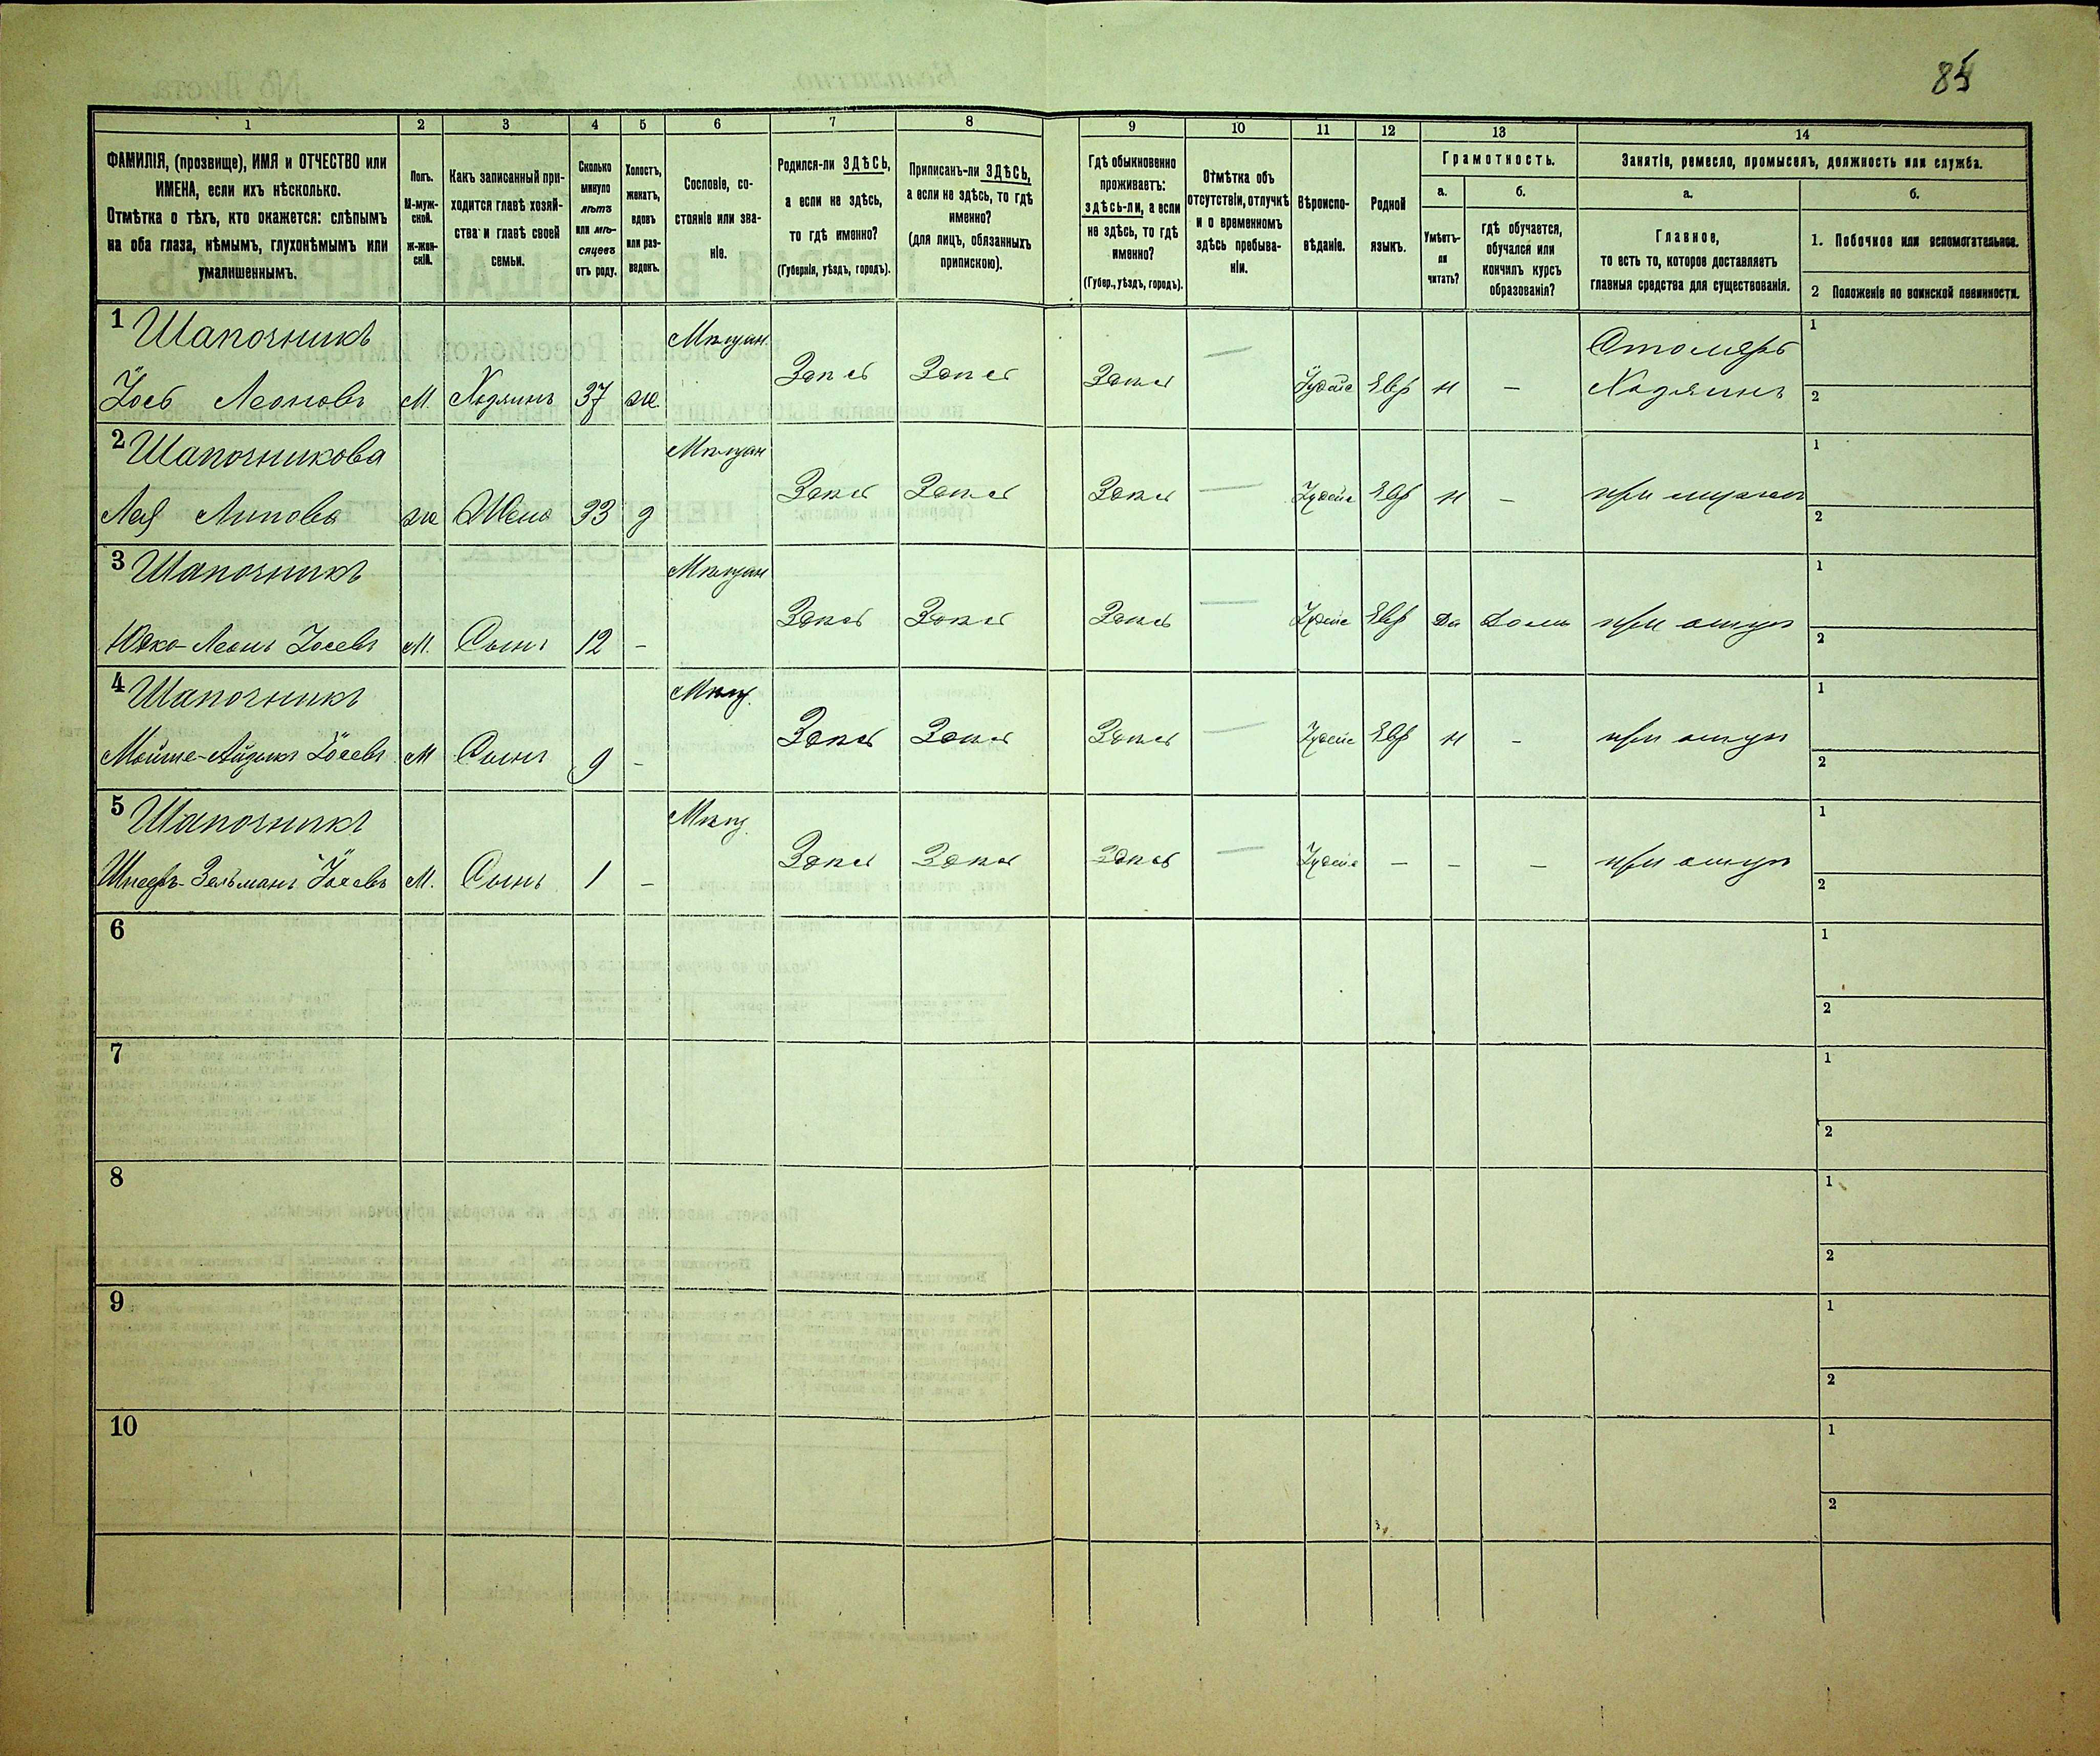 85
1 2 3 4 5 6 7 8 9 10 11 12 13 14
ФАМИЛІЯ, (прозвище), ИМЯ и ОТЧЕСТВО или
ИМЕНА, если ихъ нѣсколько.
Отмѣтка о тѣхъ, кто окажется: слѣпымъ
на оба глаза, нѣмымъ, глухонѣмымъ или
умалишеннымъ.
Полъ.
М-муж-
ской.
ж-жен-
скій.
Какъ записанный при-
ходится главѣ хозяй-
ства и главѣ своей
семьи.
Сколько
минуло
лѣтъ
или мѣ-
сяцевъ
отъ роду.
Холостъ,
женатъ,
вдовъ
или раз-
веденъ.
Сословіе, со-
стояніе или зва-
ніе.
Родился-ли ЗДѢСЬ,
а если не здѣсь,
то гдѣ именно?
(Губернія, уѣздъ, городъ).
Приписанъ-ли ЗДѢСЬ,
а если не здѣсь, то гдѣ
именно?
(для лицъ, обязанныхъ
припискою).
Гдѣ обыкновенно
проживаетъ:
здѣсь-ли, а если
не здѣсь, то гдѣ
именно?
(Губер., уѣздъ, городъ).
Отмѣтка объ
отсутствіи, отлучкѣ
и о временномъ
здѣсь пребыва-
ніи.
Вѣроиспо-
вѣданіе.
Родной
языкъ.
Грамотность.
а.
Умѣетъ-
ли
читать?
б.
гдѣ обучается,
обучался или
кончилъ курсъ
образованія?
Занятіе, ремесло, промыселъ, должность или служба.
а.
Главное,
то есть то, которое доставляетъ
главныя средства для существованія.
б.
1. Побочное или вспомогательное.
2 Положеніе по воинской повинности.
1 Шапочникъ Мѣщан. Столяръ 1
Іось Леоновъ М. Хозяинъ 37 ж Здѣсь Здѣсь Здѣсь — Іудейс Евр н — Хозяинъ 2
2 Шапочникова Мѣщан 1
Лея Липова ж Жена 33 з Здѣсь Здѣсь Здѣсь — Іудейс Евр н — при мужѣ 2
3 Шапочникъ Мѣщан 1
Юдко-Леонъ Іосевъ М. Сынъ 12 — Здѣсь Здѣсь Здѣсь — Іудейс Евр Да Дома при отцѣ 2
4 Шапочникъ Мѣщ. 1
Мойше-Айзикъ Іосевъ М Сынъ 9 — Здѣсь Здѣсь Здѣсь — Іудейс Евр н — при отцѣ 2
5 Шапочникъ Мѣщ. 1
Шнееръ-Зельманъ Іосевъ М. Сынъ 1 — Здѣсь Здѣсь Здѣсь — Іудейс — — — при отцѣ 2
6 1
2
7 1
2
8 1
2
9 1
2
10 1
2